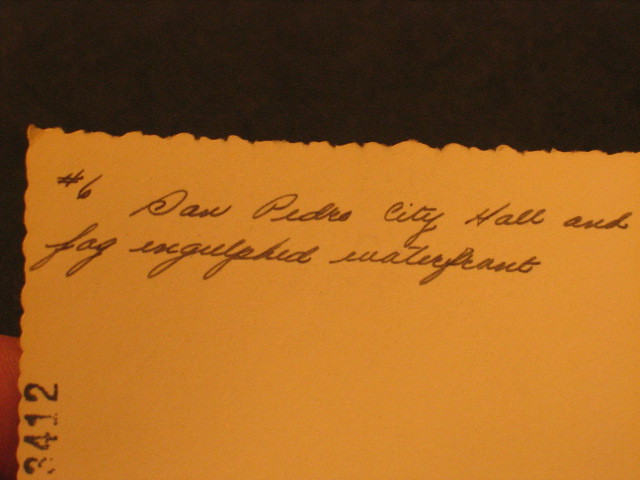 #6 San Pedro City Hall and
fog engulphed waterfront
3412